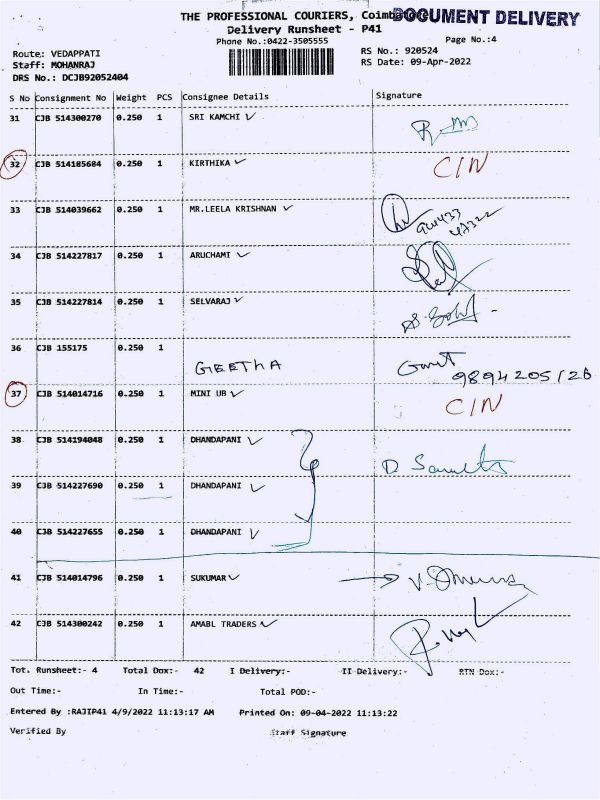 THE PROFESSIONAL COURIERS, Coimbatore
DOCUMENT DELIVERY
Delivery Runsheet - P41
Phone No.:0422-3505555
Page No.:4
Route: VEDAPPATI
RS No.: 920524
Staff: MOHANRAJ
RS Date: 09-Apr-2022
DRS No.: DCJB92052404
S No Consignment No Weight PCS Consignee Details Signature
31 CJB 514300270 0.250 1 SRI KAMCHI
32 CJB 514185684 0.250 1 KIRTHIKA C/N
33 CJB 514039662 0.250 1 MR.LEELA KRISHNAN
34 CJB 514227817 0.250 1 ARUCHAMI
35 CJB 514227814 0.250 1 SELVARAJ
36 CJB 155175 0.250 1
GEETHA
37 CJB 514014716 0.250 1 MINI UB C/N
38 CJB 514194048 0.250 1 DHANDAPANI
39 CJB 514227690 0.250 1 DHANDAPANI
40 CJB 514227655 0.250 1 DHANDAPANI
41 CJB 514014796 0.250 1 SUKUMAR
42 CJB 514300242 0.250 1 AMABL TRADERS
Tot. Runsheet:- 4 Total Dox:- 42 I Delivery:- II Delivery:- RTN Dox:-
Out Time:- In Time:- Total POD:-
Entered By :RAJIP41 4/9/2022 11:13:17 AM Printed On: 09-04-2022 11:13:22
Verified By Staff Signature